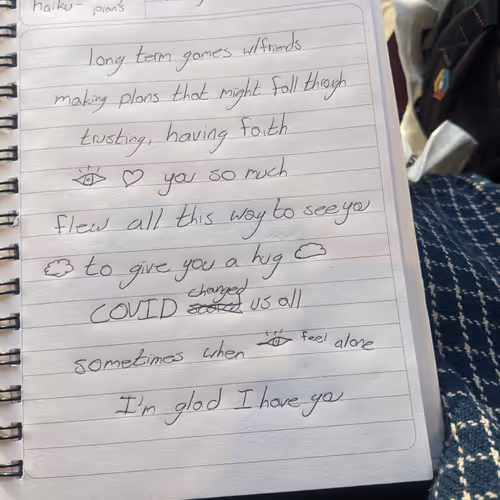 haiku - plans
long term games w/friends
making plans that might fall through
trusting, having faith
👁 ♡ you so much
flew all this way to see ya
to give you a hug
COVID changed us all
sometimes when 👁 feel alone
I'm glad I have ya